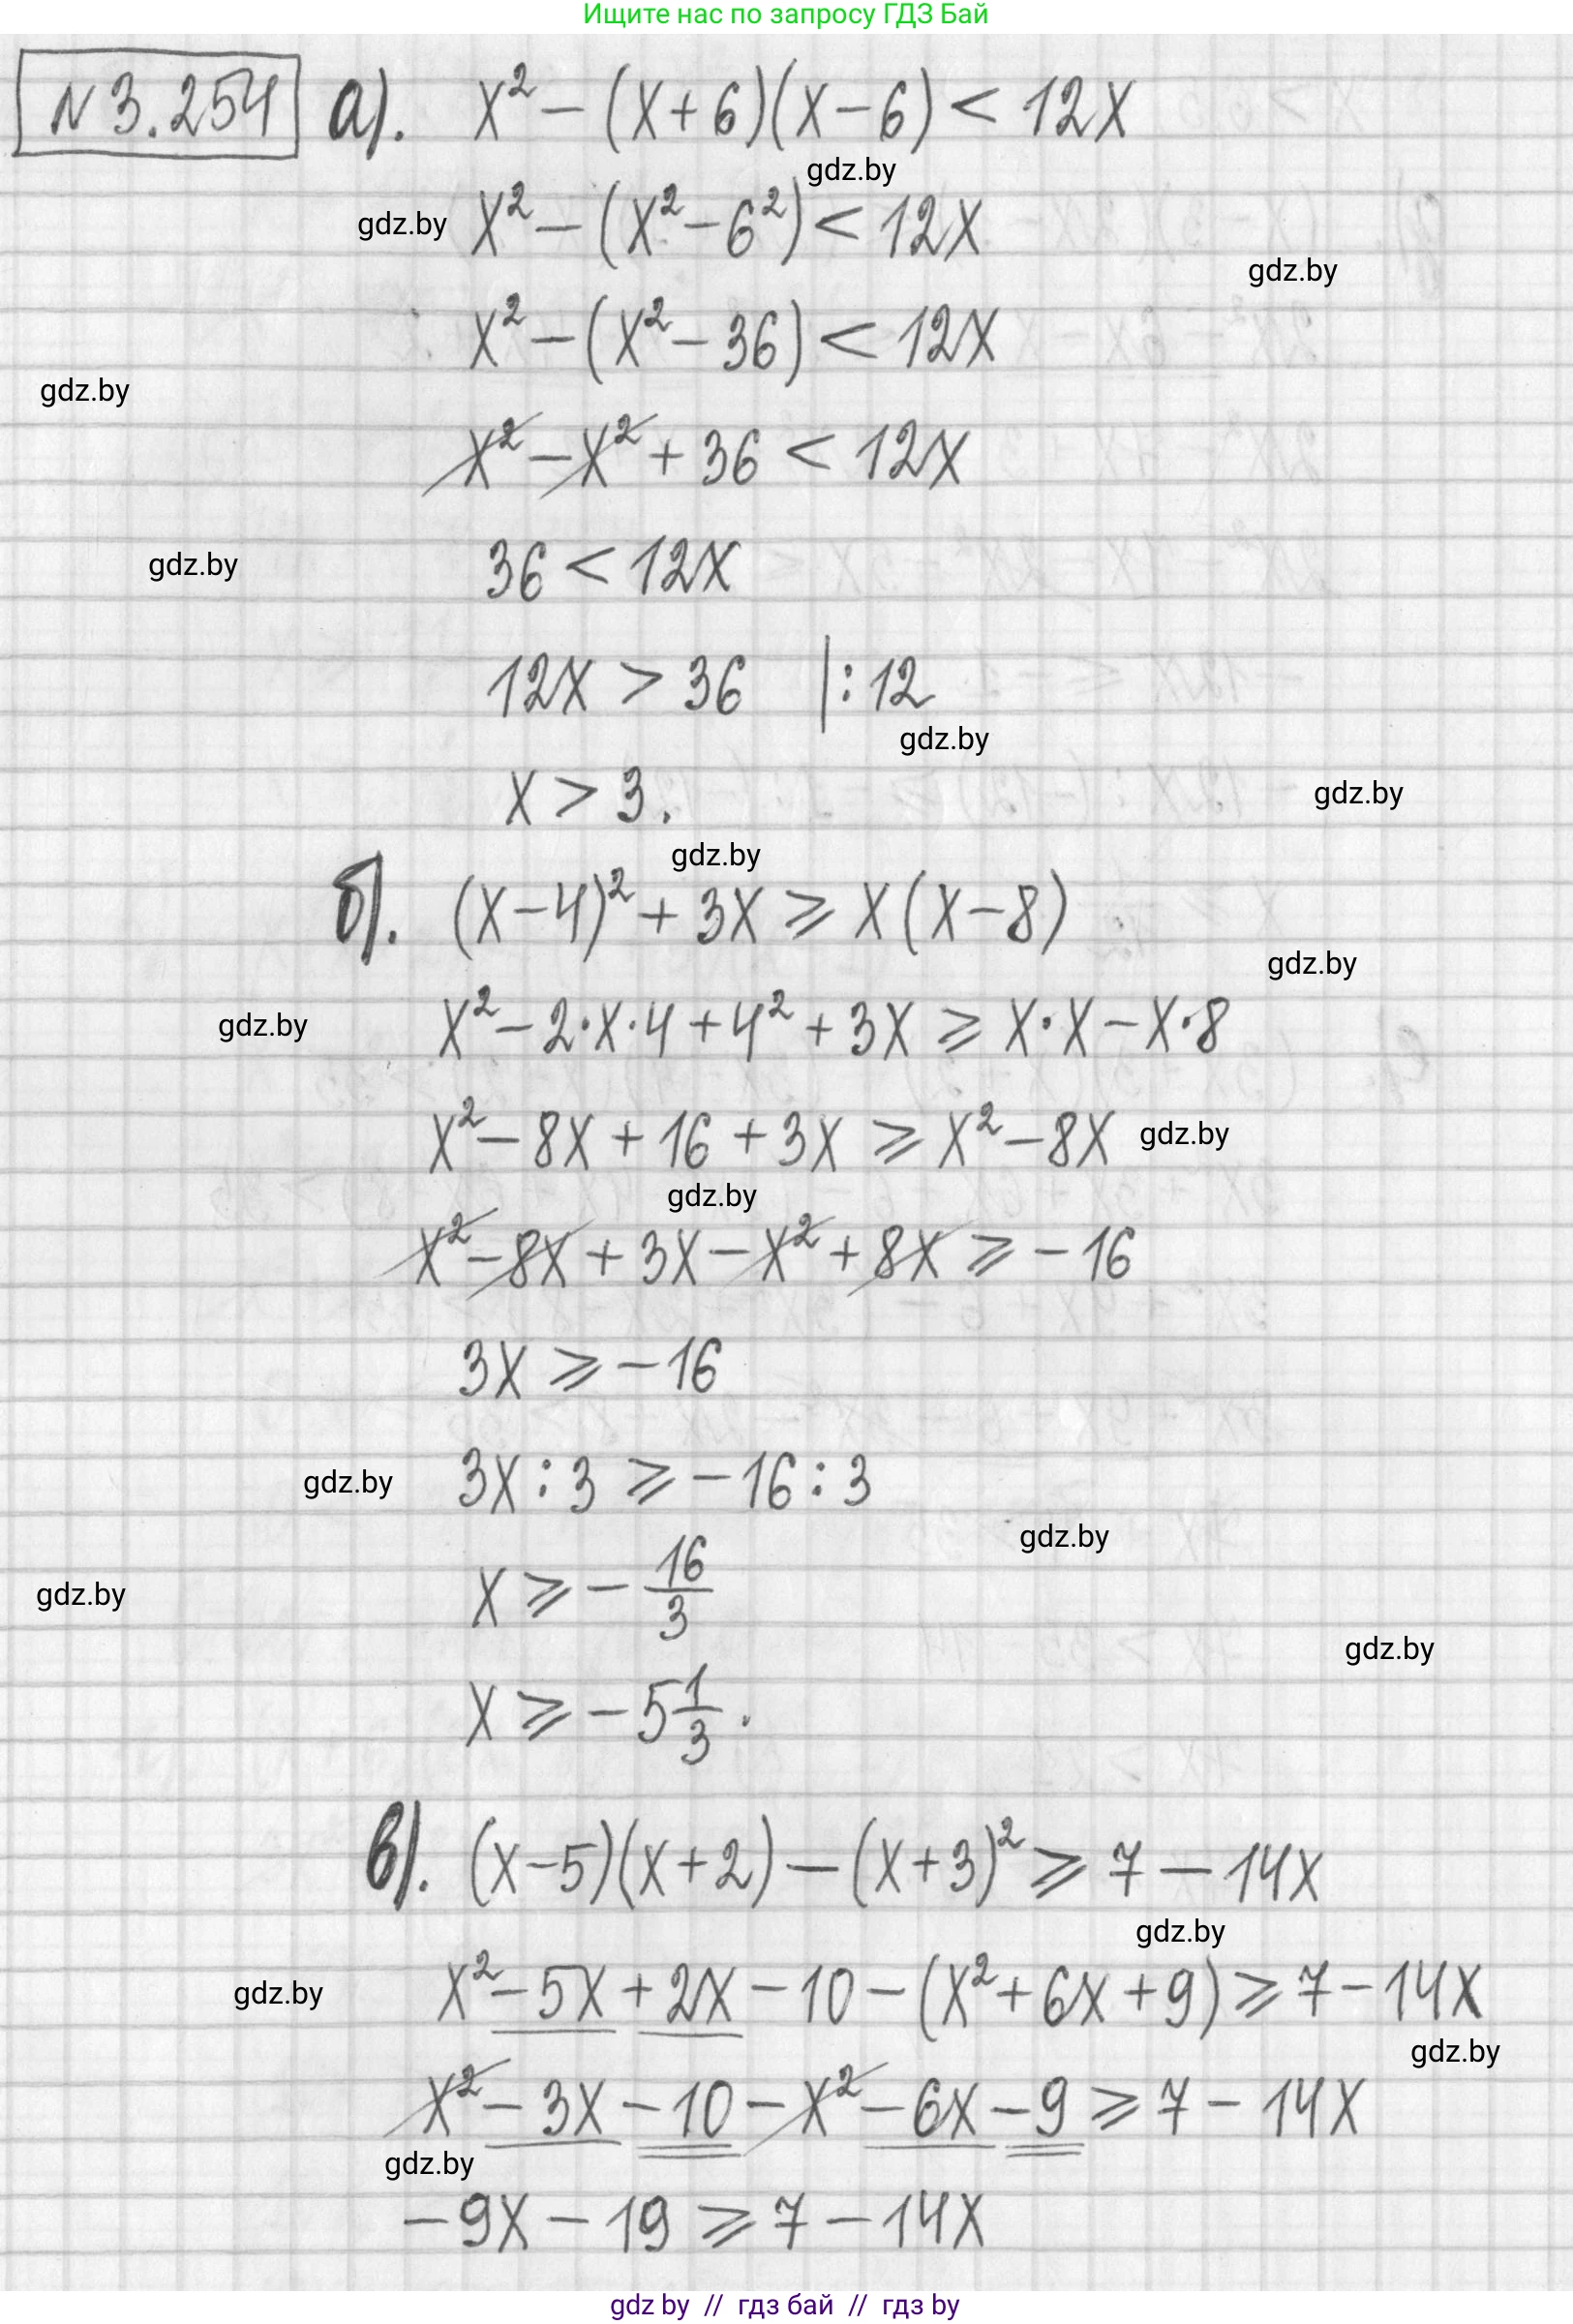 Ищите нас по запросу ГДЗ Бай
N 3.254 а). x² - (x+6)(x-6) < 12x
gdz.by
gdz.by x² - (x² - 6²) < 12x
gdz.by
x² - (x² - 36) < 12x
gdz.by
x² - x² + 36 < 12x
gdz.by 36 < 12x
12x > 36 |:12
gdz.by
x > 3. gdz.by
gdz.by
б). (x-4)² + 3x ⩾ x(x-8)
gdz.by
gdz.by x² - 2·x·4 + 4² + 3x ⩾ x·x - x·8
x² - 8x + 16 + 3x ⩾ x² - 8x gdz.by
gdz.by
x² - 8x + 3x - x² + 8x ⩾ -16
3x ⩾ -16
gdz.by 3x : 3 ⩾ -16 : 3
gdz.by
gdz.by x ⩾ - 16/3
gdz.by
x ⩾ -5 1/3.
в). (x-5)(x+2) - (x+3)² ⩾ 7 - 14x
gdz.by
gdz.by x² - 5x + 2x - 10 - (x² + 6x + 9) ⩾ 7 - 14x
gdz.by
x² - 3x - 10 - x² - 6x - 9 ⩾ 7 - 14x
gdz.by
-9x - 19 ⩾ 7 - 14x
gdz.by // гдз бай // гдз by